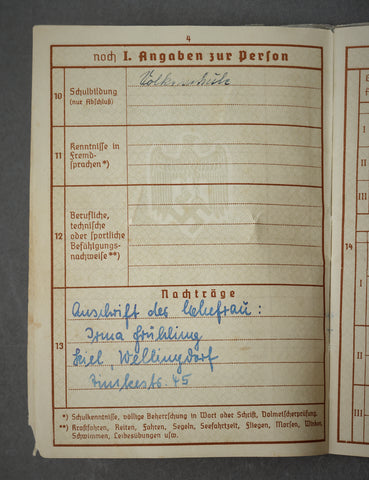 4
noch I. Angaben zur Person
10
Schulbildung
(nur Abschluß)
Volksschule
11
Kenntnisse in
Fremd-
sprachen*)
12
Berufliche,
technische
oder sportliche
Befähigungs-
nachweise**)
Nachträge
13
Anschrift der Ehefrau:
Irma Frühling
Kiel, Wellingdorf
45
*) Schulkenntnisse, völlige Beherrschung in Wort oder Schrift, Dolmetscherprüfung.
**) Kraftfahren, Reiten, Fahren, Segeln, Seefahrtzeit, Fliegen, Morsen, Winken,
Schwimmen, Leibesübungen usw.
I
II
III
14
I
II
III